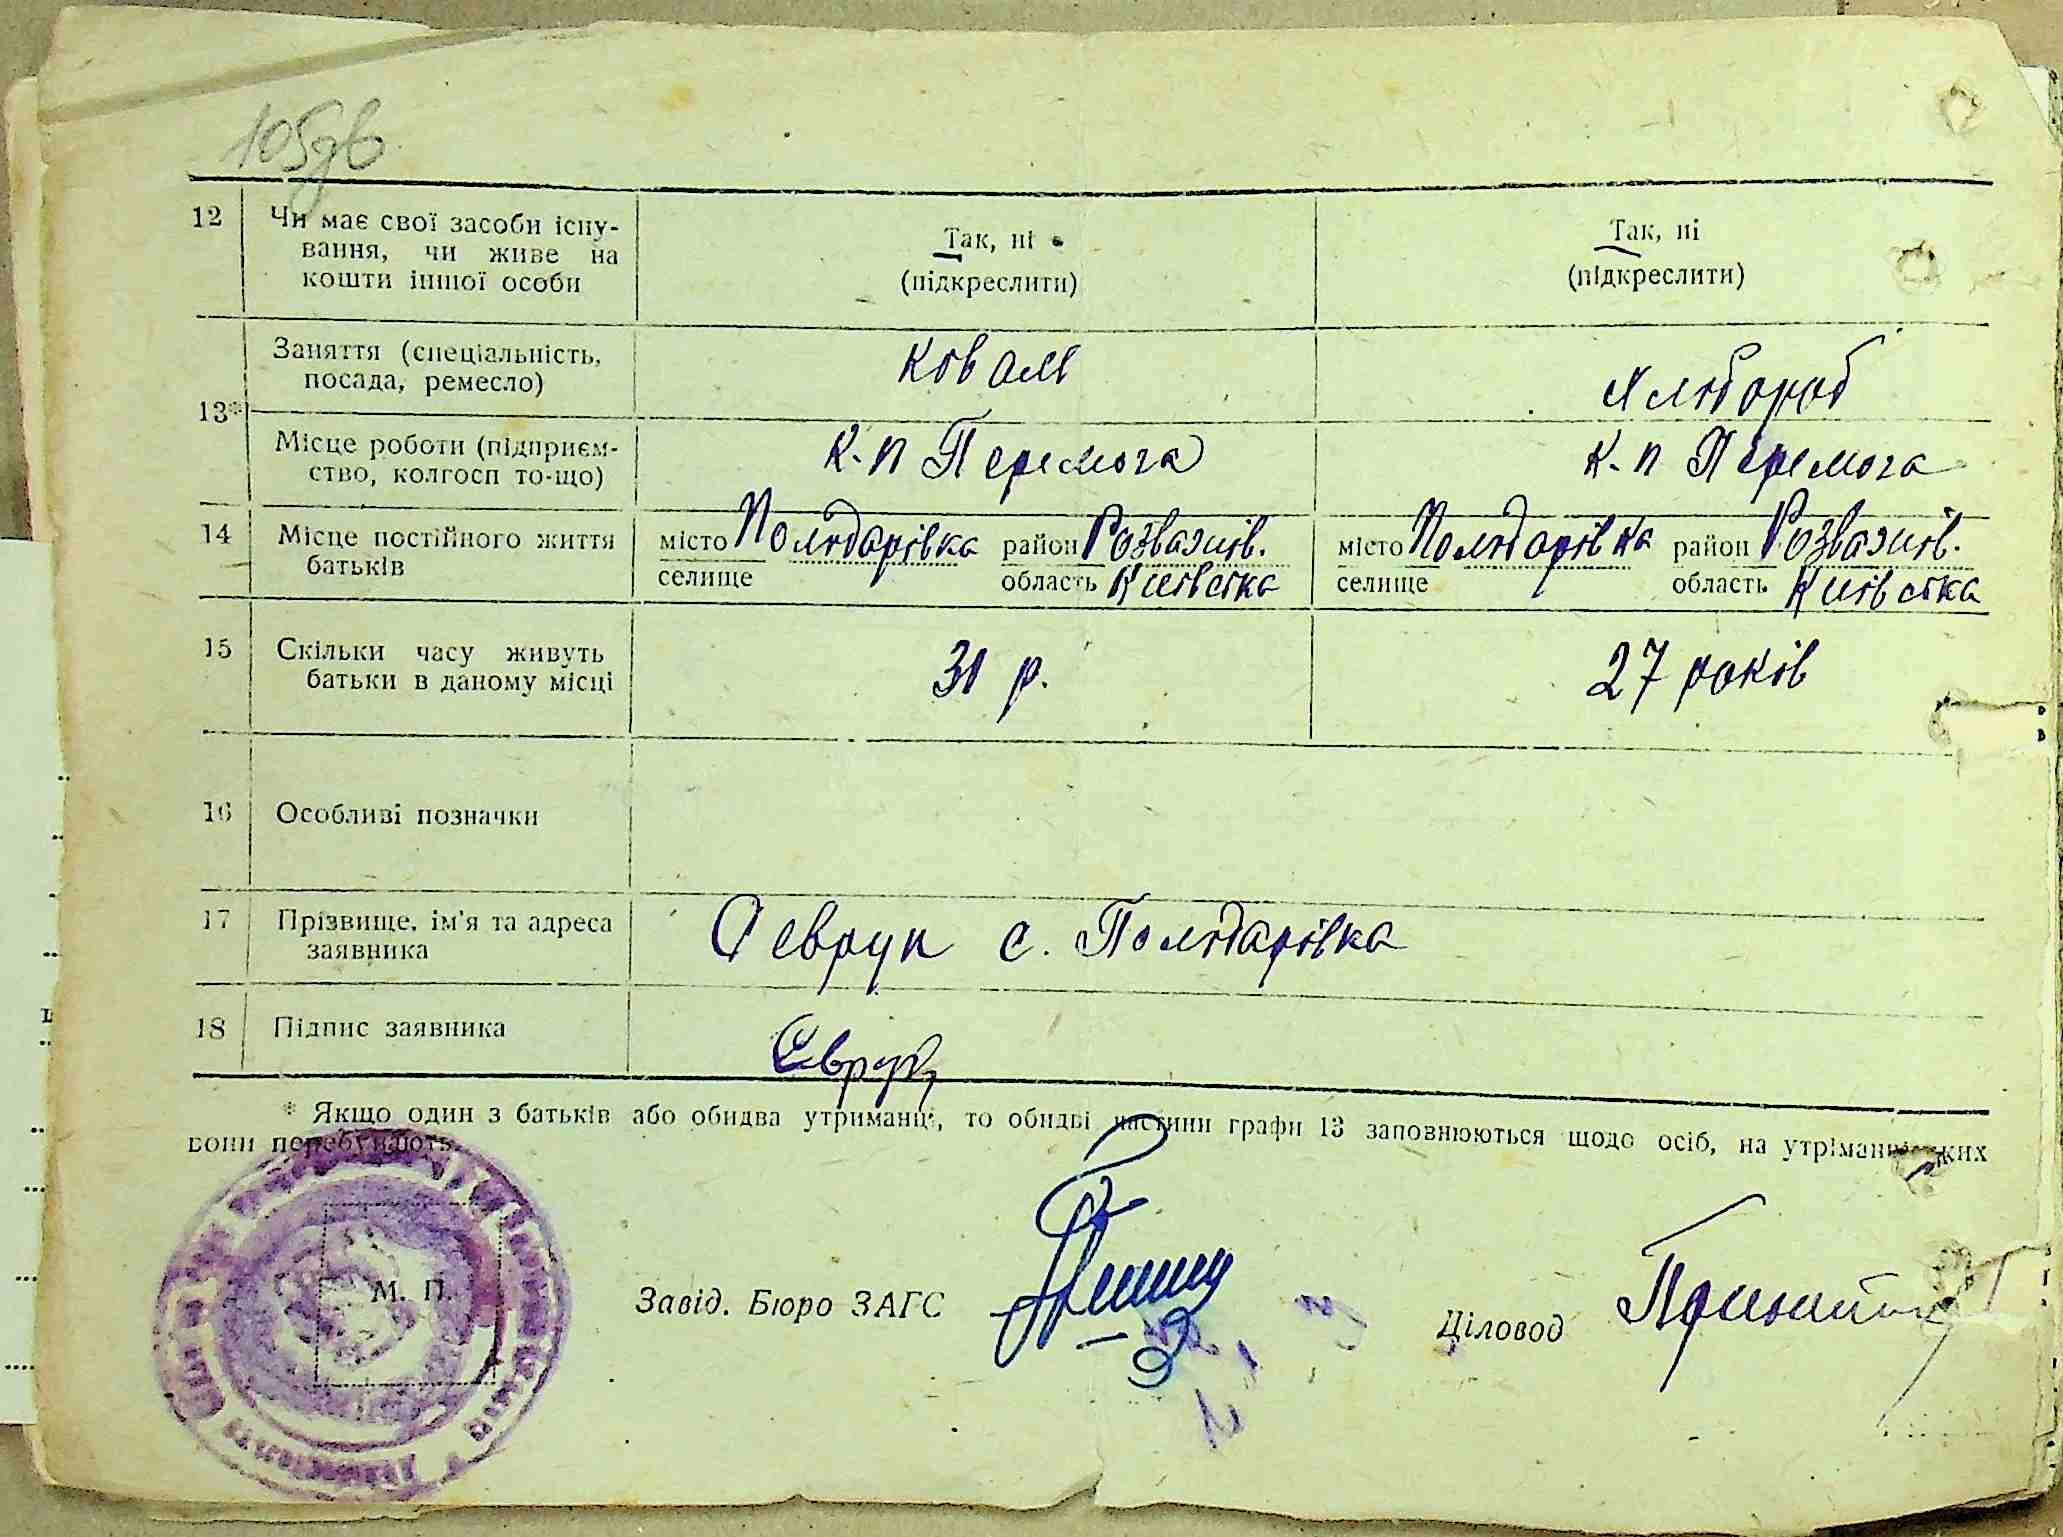 105зв
12 Чи має свої засоби існу-
вання, чи живе на
кошти іншої особи
Так, ні
(підкреслити)
Так, ні
(підкреслити)
13*
Заняття (спеціальність,
посада, ремесло)
Коваль
Хлібороб
Місце роботи (підприєм-
ство, колгосп то-що)
К.п Перемога
К.п Перемога
14 Місце постійного життя
батьків
місто Полідарівка район Розважів.
селище область Київська
місто Полідарівка район Розважів.
селище область Київська
15 Скільки часу живуть
батьки в даному місці
31 р.
27 років
16 Особливі позначки
17 Прізвище, ім'я та адреса
заявника
с. Полідарівка
18 Підпис заявника
* Якщо один з батьків або обидва утриманці, то обидві частини графи 13 заповнюються щодо осіб, на утріманні яких
вони перебувають.
М. П.
Завід. Бюро ЗАГС
Діловод